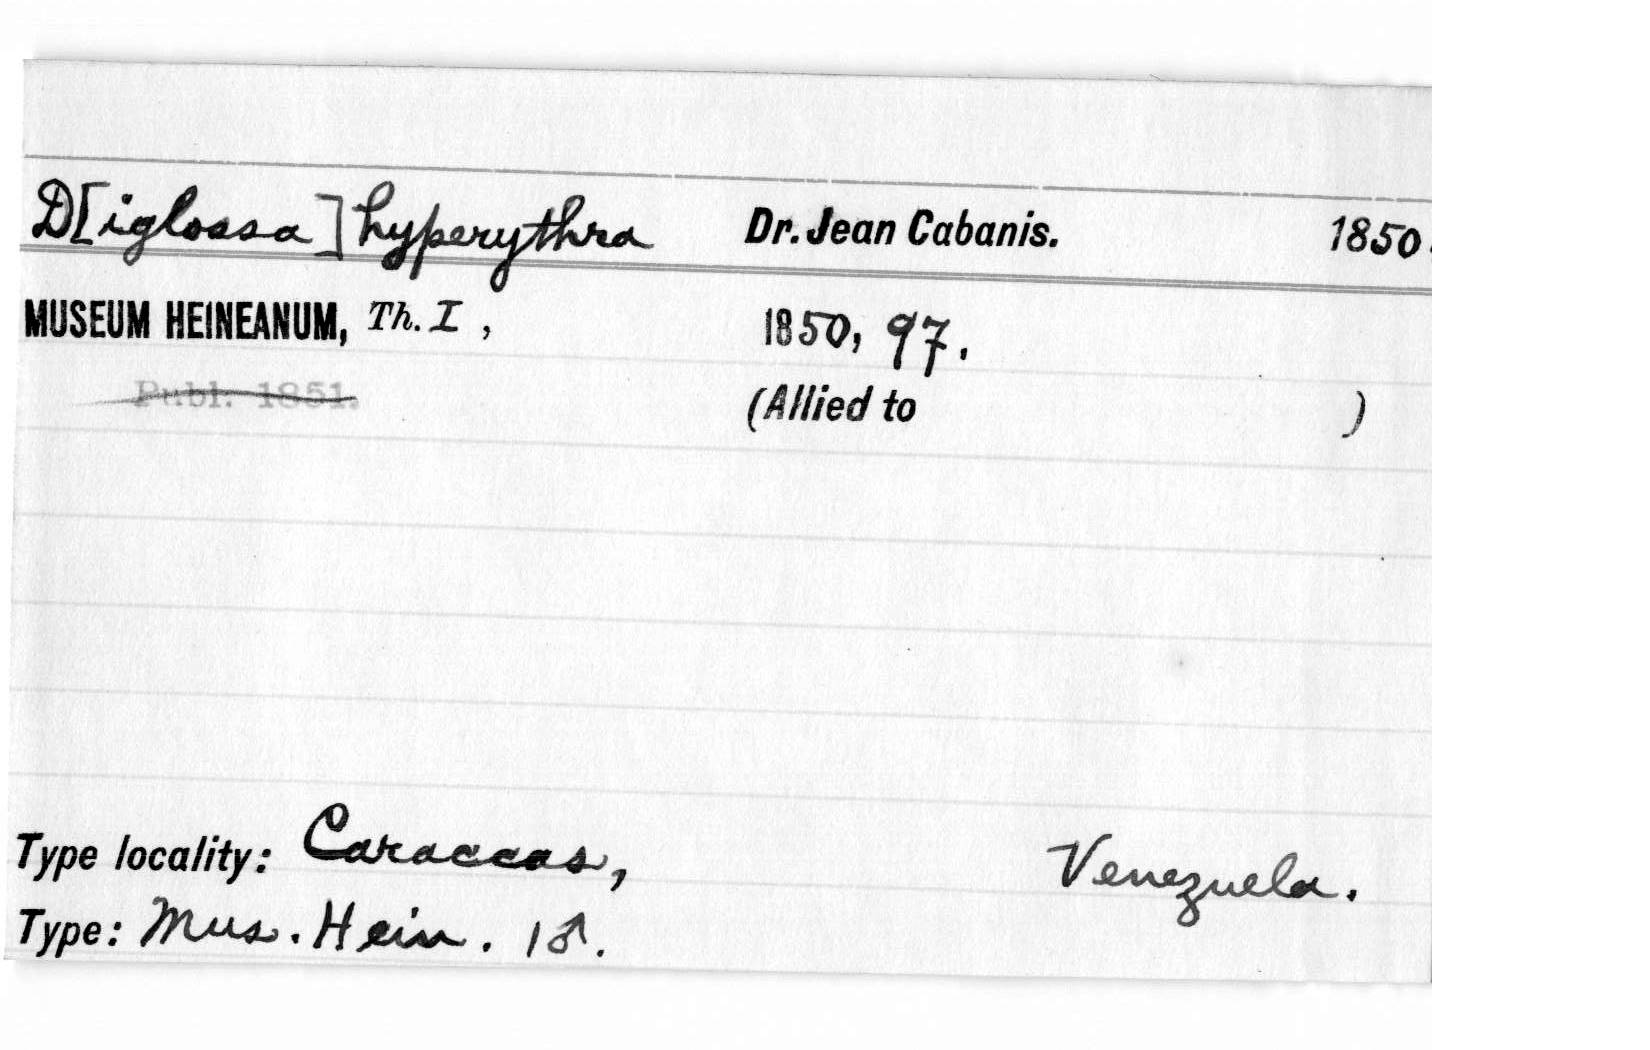 D[iglossa] hyperythra Dr. Jean Cabanis. 1850.
MUSEUM HEINEANUM, Th. I, 1850, 97.
Publ. 1851. (Allied to )
Type locality: Caraccas, Venezuela.
Type: Mus. Hein. 1♂.